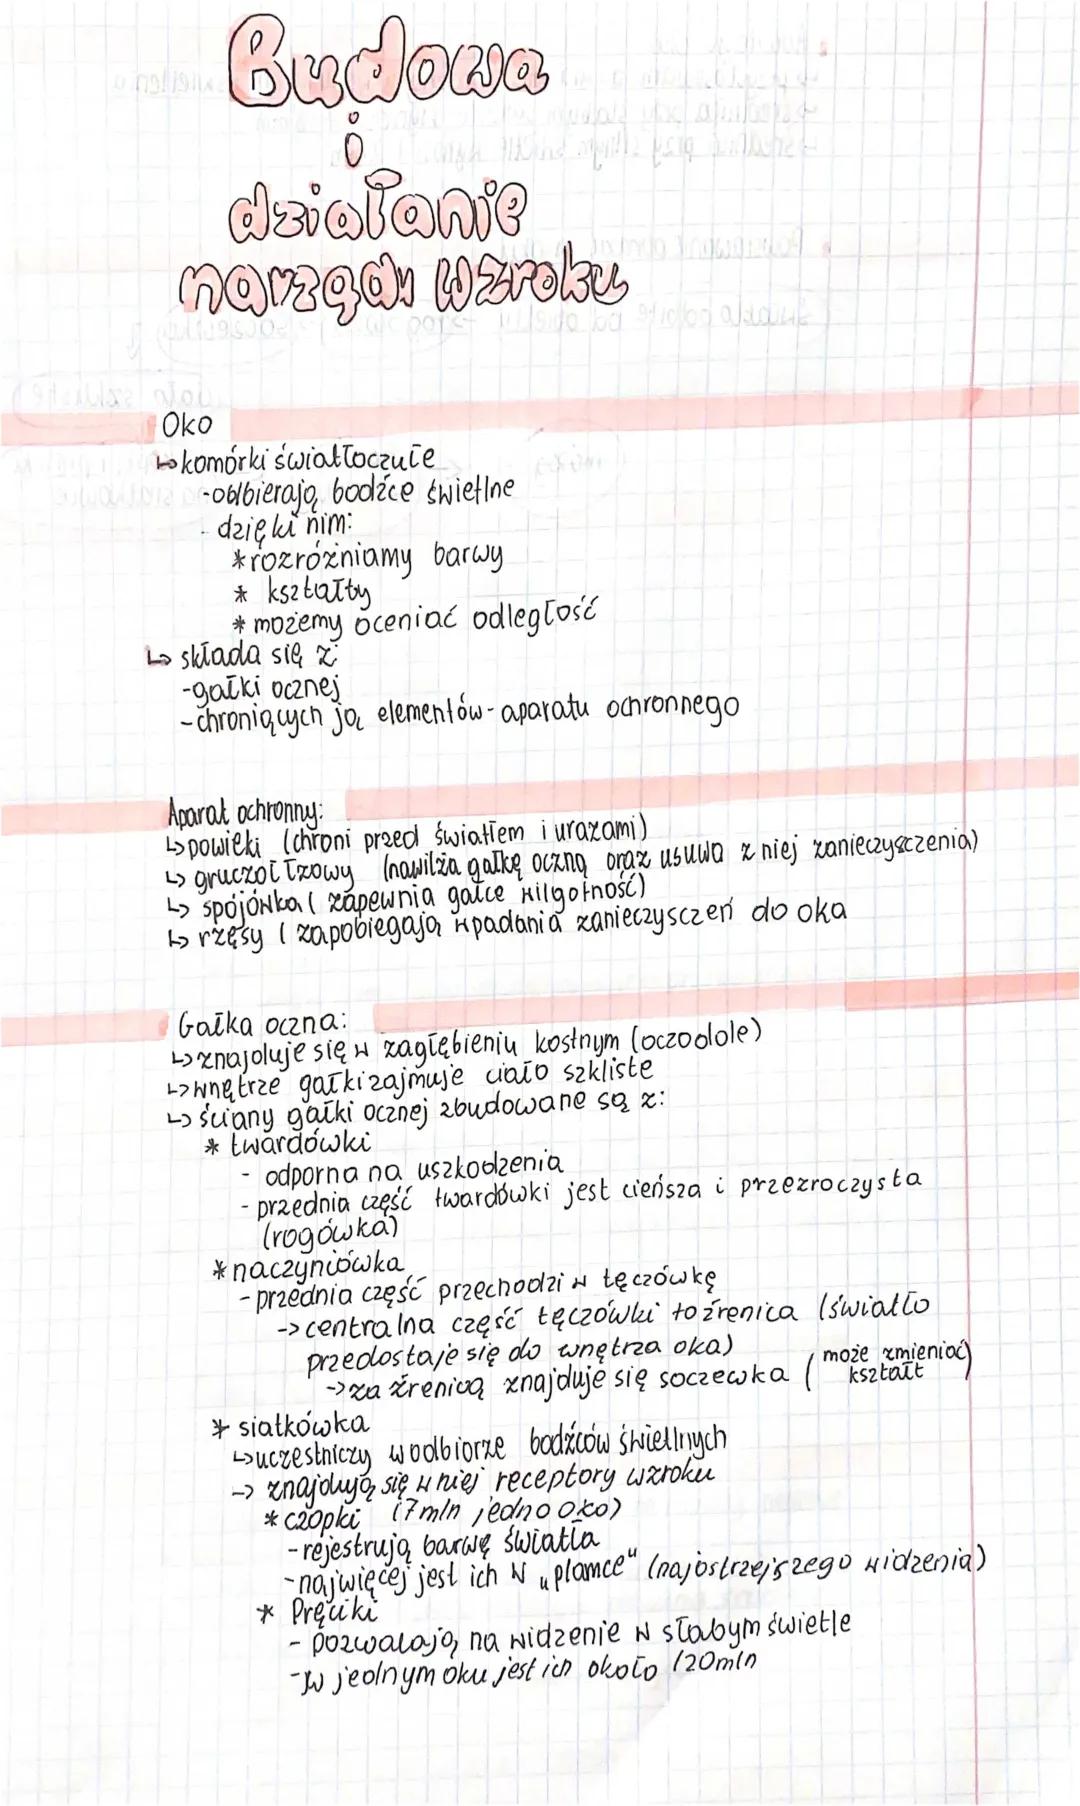 Budowa
i
działanie
narządu wzroku
Oko
↳ komórki światłoczułe
-odbierają bodźce świetlne
- dzięki nim:
* rozróżniamy barwy
* kształty
* możemy oceniać odległość
↳ składa się z:
-gałki ocznej
-chroniących ją elementów-aparatu ochronnego
Aparat ochronny:
↳ powieki (chroni przed światłem i urazami)
↳ gruczoł łzowy (nawilża gałkę oczną oraz usuwa z niej zanieczyszczenia)
↳ spojówka ( zapewnia gałce wilgotność)
↳ rzęsy ( zapobiegają wpadania zanieczysczeń do oka
Gałka oczna:
↳ znajduje się w zagłębieniu kostnym (oczodole)
↳ wnętrze gałki zajmuje ciało szkliste
↳ ściany gałki ocznej zbudowane są z:
* twardówki
- odporna na uszkodzenia
- przednia część twardówki jest cieńsza i przezroczysta
(rogówka)
* naczyniówka
- przednia część przechodzi w tęczówkę
-> centralna część tęczówki to źrenica (światło
przedostaje się do wnętrza oka)
-> za źrenicą znajduje się soczewka (może zmieniać kształt)
* siatkówka
↳ uczestniczy w odbiorze bodźców świetlnych
-> znajdują się w niej receptory wzroku
* czopki (7mln jedno oko)
- rejestrują barwę światła
- najwięcej jest ich w „plamce" (najostrzejszego widzenia)
* Pręciki
- pozwalają na widzenie w słabym świetle
- w jednym oku jest ich około 120mln